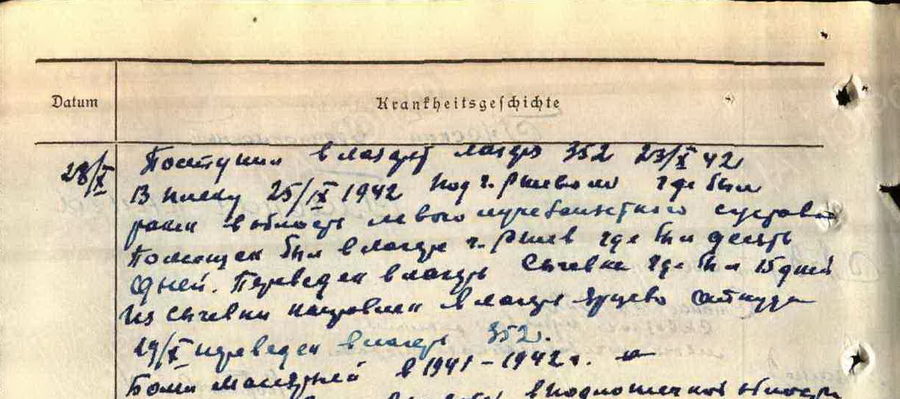 Datum Krankheitsgeschichte
28/X Поступил в лазарет лагеря 352 23/X 42
В плену 25/IX 1942 под г. Ржевом где был
ранен в область левого лучезапястного сустава
Помещен был в лагерь г. Ржев где был десять
дней. Переведен в лагерь Сычевка где был 15 дней
Из Сычевки направлен в лагерь Ярцево откуда
19/X переведен в лагерь 352.
Болел малярией в 1941-1942 г.
в подложечной области